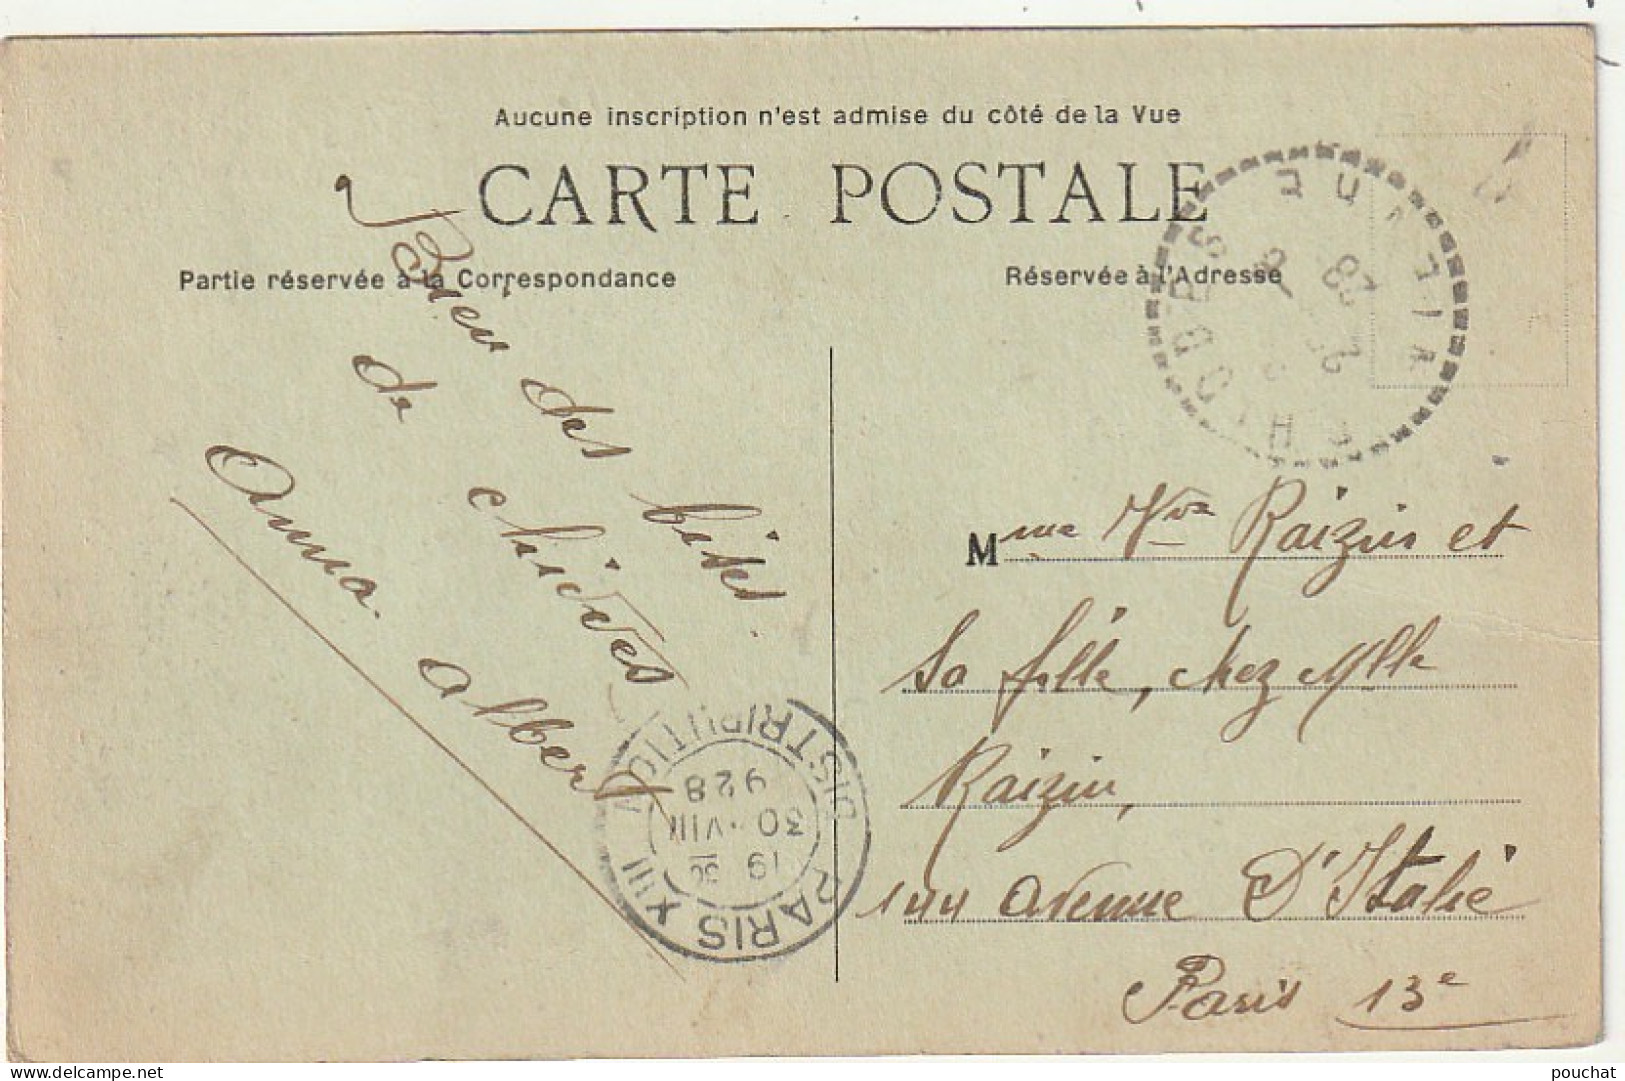 Aucune inscription n'est admise du côté de la Vue
CARTE POSTALE
Partie réservée à la Correspondance
Réservée à l'Adresse
Bien des bises
de
Anna
Albert
Mme Vve Raizin et
sa fille, chez Mlle
Raizin,
144 avenue D'Italie
Paris 13e
PARIS XIII DISTRIBUTION
19 30
30 · VIII
928
28
delcampe.net
pouchat